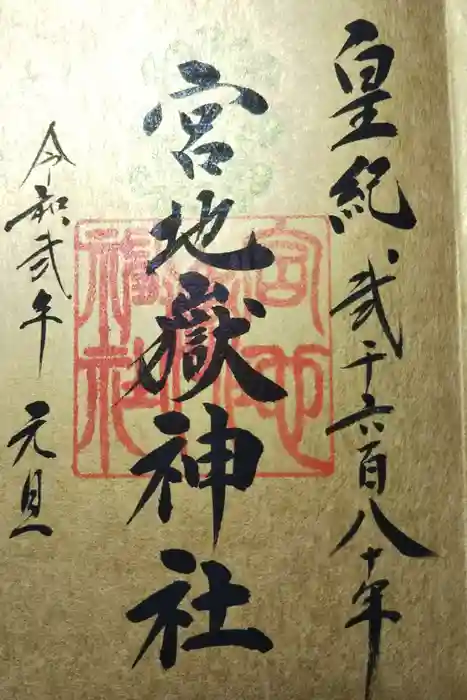 皇紀弐千六百八十年
宮地嶽神社
令和弐年
元旦